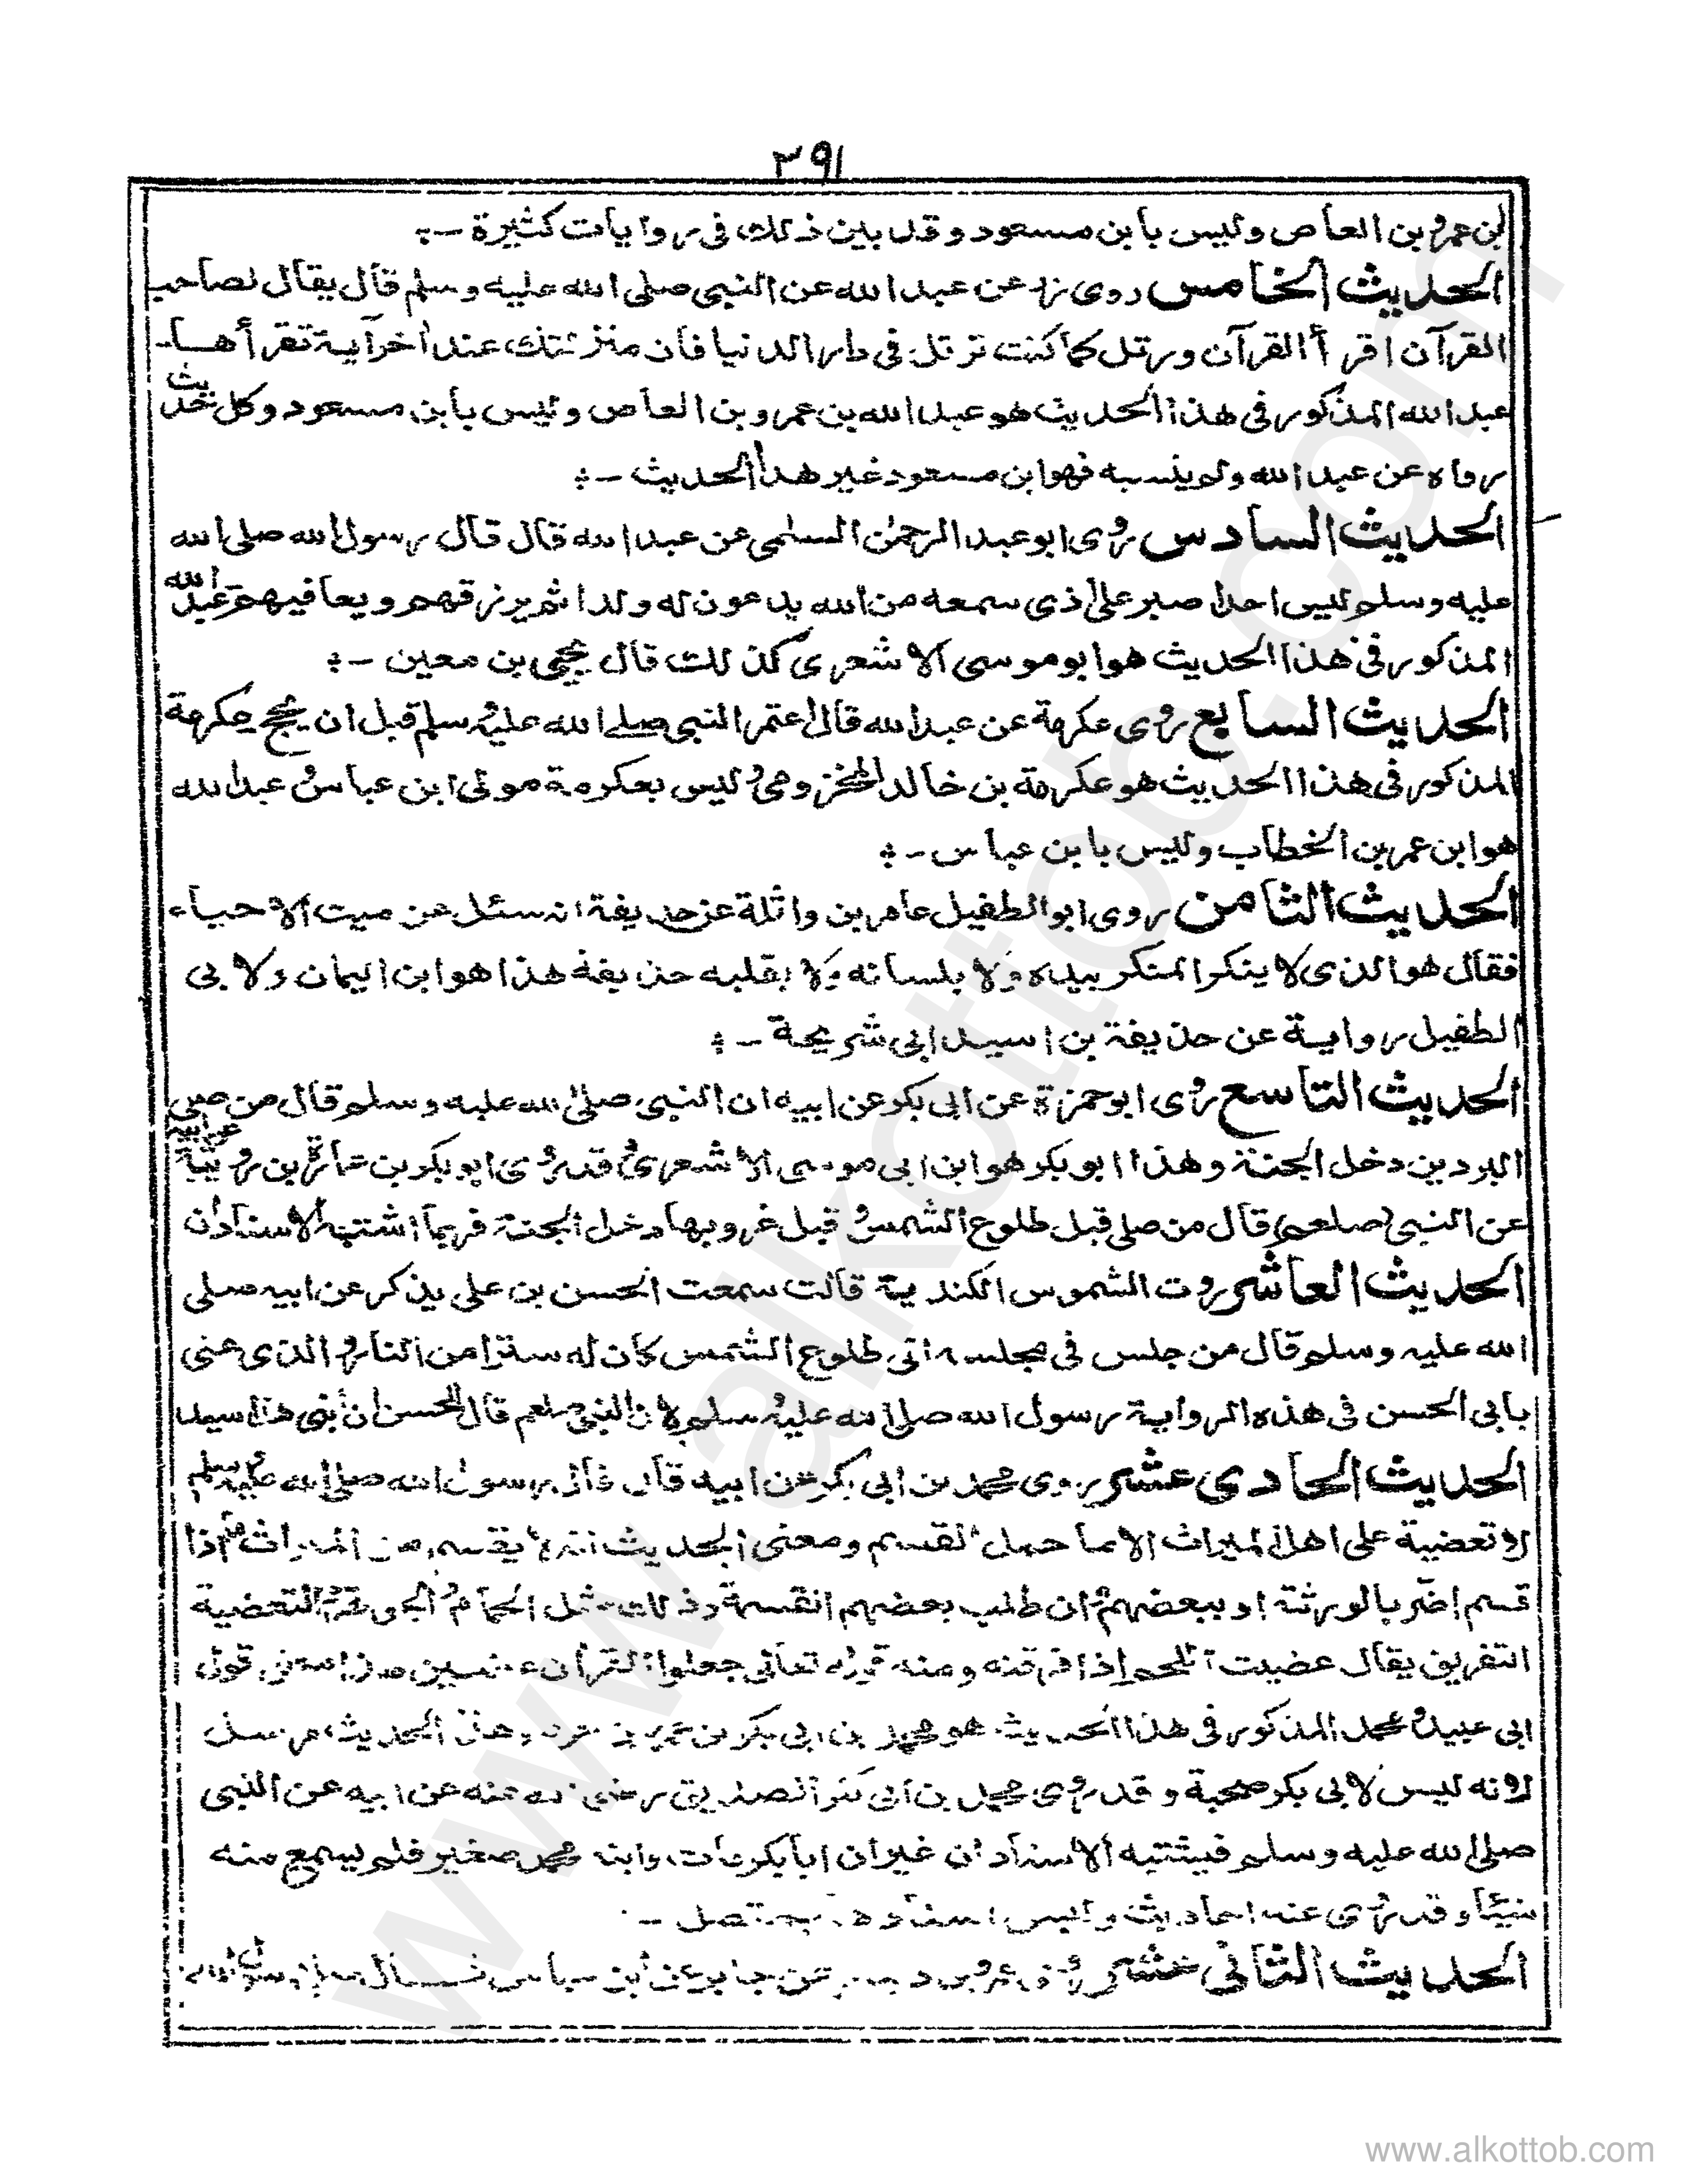 ٣٩١
ابن عمرو بن العاص وليس بابن مسعود وقد بين ذلك في روايات كثيرة -
الحديث الخامس روى زر عن عبد الله عن النبي صلى الله عليه وسلم قال يقال لصاحب
القرآن اقرأ القرآن ورتل كما كنت ترتل في دار الدنيا فان منزلتك عند اخر آية تقرأها -
عبد الله المذكور في هذا الحديث هو عبد الله بن عمرو بن العاص وليس بابن مسعود وكل حديث
رواه عن عبد الله ولم ينسبه فهو ابن مسعود غير هذا الحديث -
الحديث السادس روى ابو عبد الرحمن السلمي عن عبد الله قال قال رسول الله صلى الله
عليه وسلم ليس احدا صبر على اذى سمعه من الله يدعون له ولدا ثم يرزقهم ويعافيهم وعبد الله
المذكور في هذا الحديث هو ابو موسى الاشعري كذلك قال يحيى بن معين -
الحديث السابع روى عكرمة عن عبد الله قال اعتمر النبي صلى الله عليه وسلم قبل ان يحج عكرمة
المذكور في هذا الحديث هو عكرمة بن خالد المخزومى وليس بعكرمة مولى ابن عباس وعبد الله
هو ابن عمر بن الخطاب وليس بابن عباس -
الحديث الثامن روى ابو الطفيل عامر بن واثلة عن حذيفة انه سئل عن ميت الاحياء
فقال هو الذى لا ينكر المنكر بيده ولا بلسانه ولا بقلبه حذيفة هذا هو ابن اليمان ولابي
الطفيل رواية عن حذيفة بن اسيد ابي شريحة -
الحديث التاسع روى ابو حمزة عن ابى بكر عن ابيه ان النبي صلى الله عليه وسلم قال من صلى
البردين دخل الجنة وهذا ابو بكر هو ابن ابى موسى الاشعرى وقد روى ابو بكر بن عمارة بن رويبة عن ابيه
عن النبي (صلعم) قال من صلى قبل طلوع الشمس وقبل غروبها دخل الجنة فربما اشتبه الاسنادان
الحديث العاشر روت الشموس الكندية قالت سمعت الحسن بن علي يذكر عن ابيه صلى
الله عليه وسلم قال من جلس في مجلسه الى طلوع الشمس كان له سترا من النار والذى عنى
بابى الحسن فى هذه الرواية رسول الله صلى الله عليه وسلم لان النبي صلعم قال الحسن ان ابنى هذا سيد
الحديث الحادي عشر روى محمد بن ابى بكر عن ابيه قال قال رسول الله صلى الله عليه وسلم
لا تعضية على اهل الميراث الا ما حمل القسم ومعنى الحديث انه لا يقسم من الميراث ما اذا
قسم اضر بالورثة او ببعضهم وان طلب بعضهم القسمة وذلك مثل الحمام والجوهرة والتعضية
التفريق يقال عضيت اللحم اذا فرقته ومنه قوله تعالى جعلوا القرآن عضين هذا معنى قول
ابى عبيد ومحمد المذكور فى هذا الحديث هو محمد بن ابى بكر بن وهذا الحديث مرسل
لانه ليس لابى بكر صحبة وقد روى محمد بن ابى بكر الصديق رضى الله عنه عن ابيه عن النبي
صلى الله عليه وسلم فيشتبه الاسنادان غير ان ابا بكر مات وابنه محمد صغير فلم يسمع منه
شيئا وقد روى عنه احاديث وليس اسنادها بمتصل -
الحديث الثاني عشر روى عمرو بن عن جابر عن ابن عباس رسول الله
www.alkottob.com
www.alkottob.com